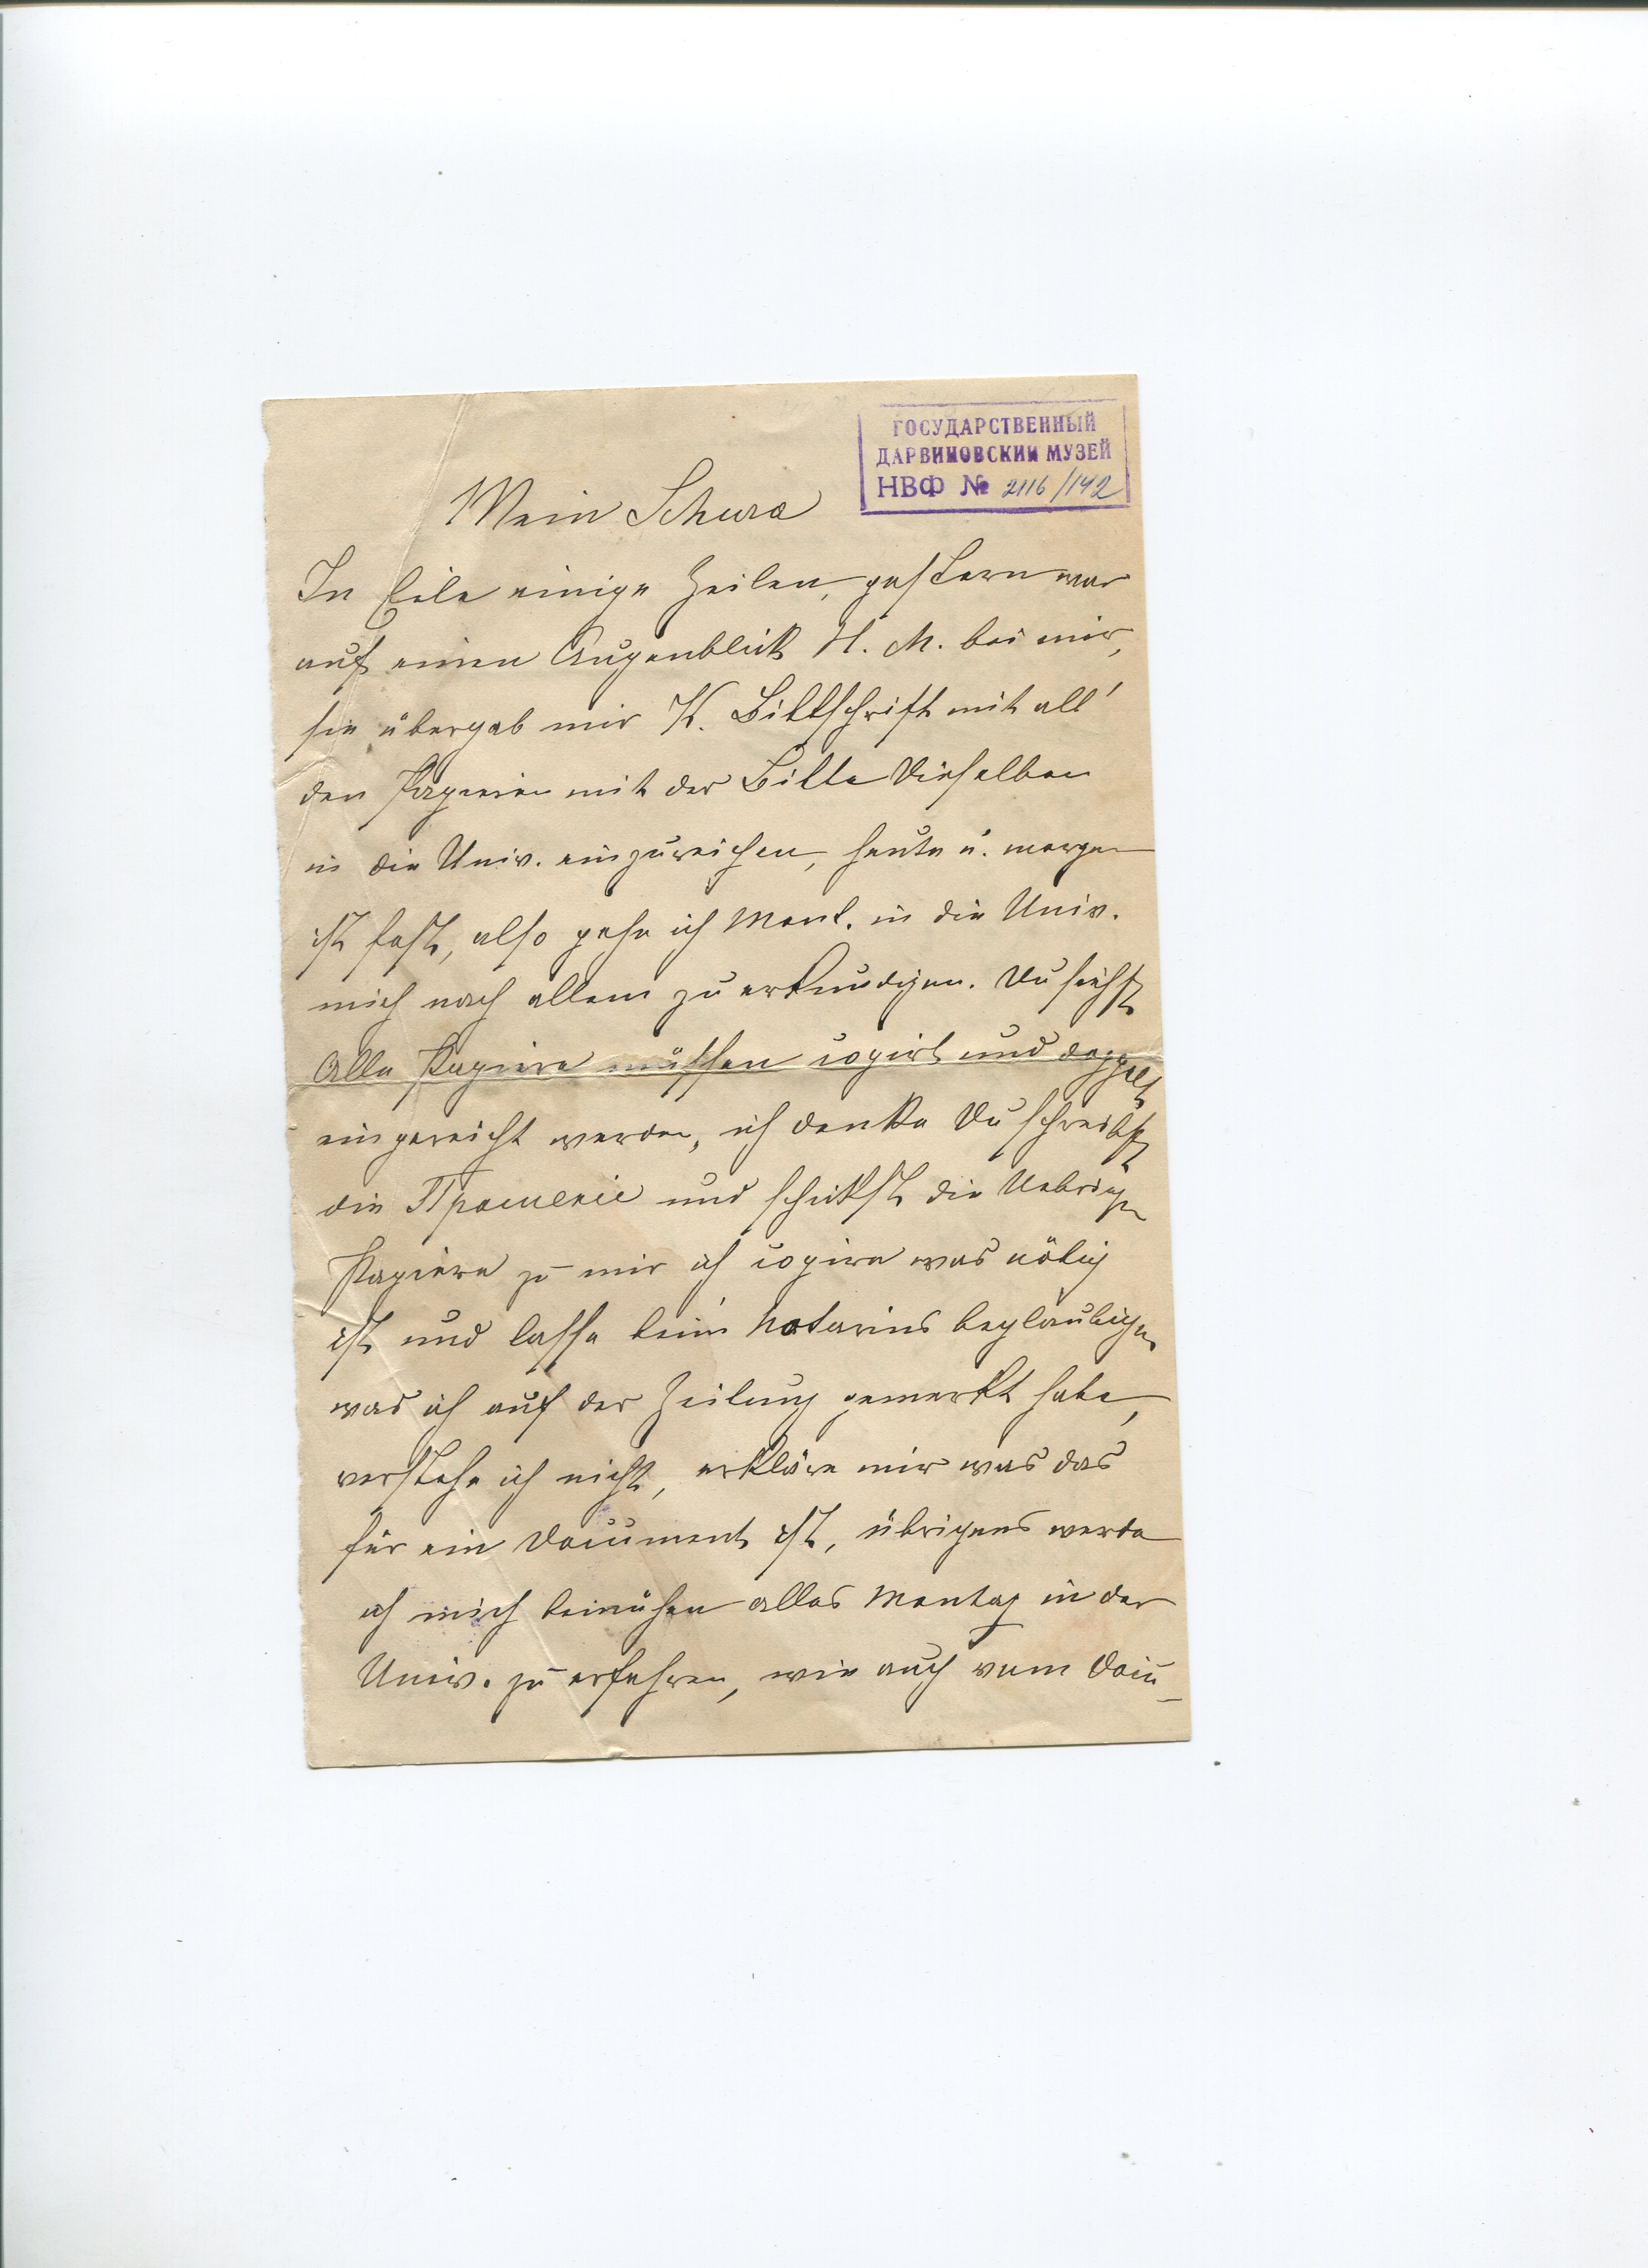 ГОСУДАРСТВЕННЫЙ
ДАРВИНОВСКИЙ МУЗЕЙ
НВФ № 2116/142
Mein Schura
In Eile einige Zeilen, gestern war
auf einen Augenblick H. M. bei mir,
sie übergab mir K. Bittschrift mit all'
den Papieren mit der Bitte dieselben
in die Univ. einzureichen, heute u. morgen
ist fest, also gehe ich Mont. in die Univ.
mich nach allem zu erkundigen. Du siehst
Alle Papiere müssen copirt und doppelt
eingereicht werden, ich denke Du schreibst
die Прошенiе und schickst die Uebrigen
Papiere zu mir ich copire was nötig
ist und lasse beim Notarius beglaubigen
was ich auf der Zeitung gemerkt habe,
verstehe ich nicht, erkläre mir was das
für ein Document ist, übrigens werde
ich mich bemühen alles Montag in der
Univ. zu erfahren, wie auch vom Docu-